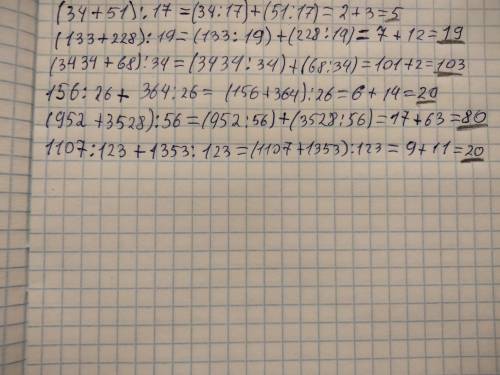 (34+51):17=(34:17)+(51:17)=2+3=5
(133+228):19=(133:19)+(228:19)=7+12=19
(3434+68):34=(3434:34)+(68:34)=101+2=103
156:26+364:26=(156+364):26=6+14=20
(952+3528):56=(952:56)+(3528:56)=17+63=80
1107:123+1353:123=(1107+1353):123=9+11=20